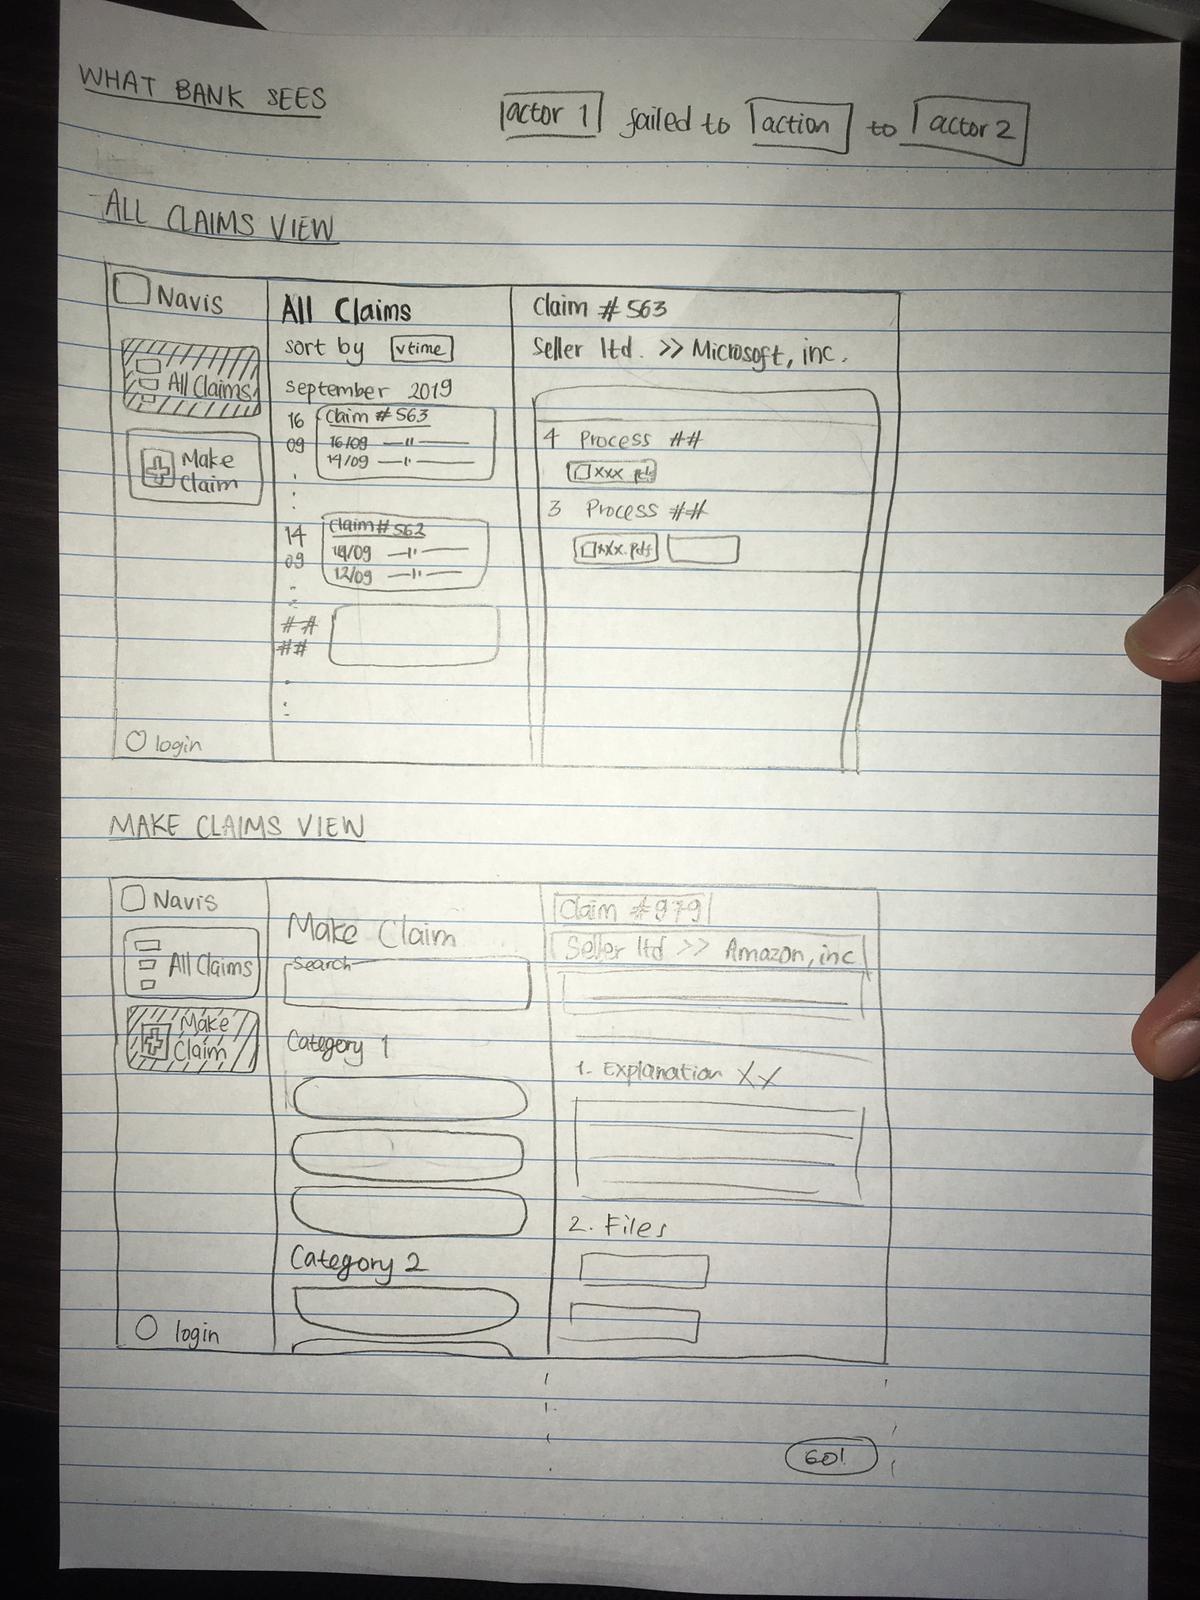 WHAT BANK SEES
actor 1 failed to action to actor 2
ALL CLAIMS VIEW
Navis
All Claims
Make
Claim
login
All Claims
sort by vtime
September 2019
16
09
Claim #563
16/09 —"—
14/09 —"—
14
09
Claim #562
14/09 —"—
12/09 —"—
##
##
Claim #563
Seller ltd. >> Microsoft, inc.
4 Process ##
xxx.pdf
3 Process ##
xxx.pdf
MAKE CLAIMS VIEW
Navis
All Claims
Make
Claim
login
Make Claim
Search
Category 1
Category 2
Claim #979
Seller ltd >> Amazon, inc
1. Explanation XX
2. Files
GO!